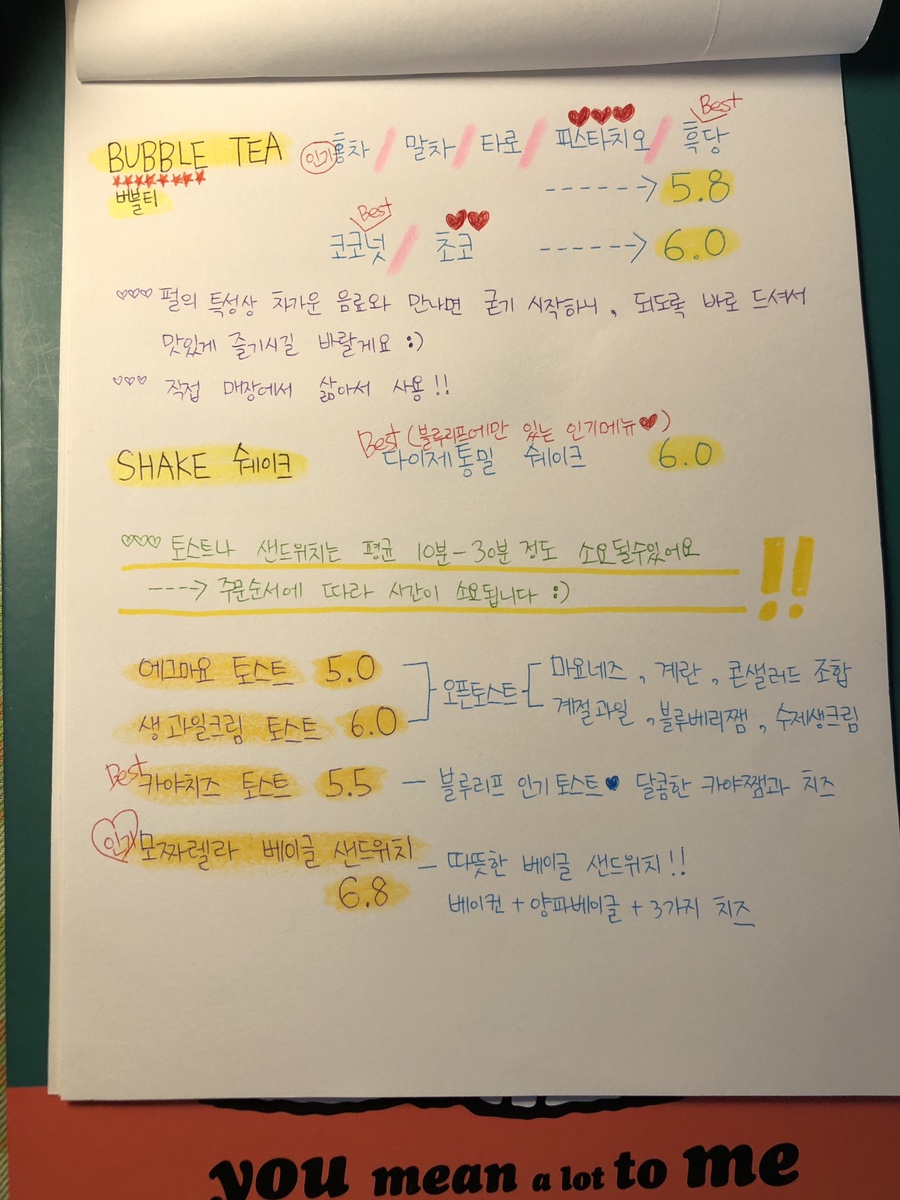 BUBBLE TEA
버블티
인기 홍차 / 말차 / 타로 / 피스타치오 / 흑당 Best
----> 5.8
Best
코코넛 / 초코 ----> 6.0
♡♡♡ 펄의 특성상 차가운 음료와 만나면 굳기 시작하니, 되도록 바로 드셔서
맛있게 즐기시길 바랄게요 :)
♡♡♡ 직접 매장에서 삶아서 사용!!
Best (블루리프에만 있는 인기메뉴♥)
SHAKE 쉐이크 다이제통밀 쉐이크 6.0
♡♡♡ 토스트나 샌드위치는 평균 10분-30분 정도 소요될수있어요 !!
----> 주문순서에 따라 시간이 소요됩니다 :)
에그마요 토스트 5.0
생과일크림 토스트 6.0
오픈토스트
마요네즈, 계란, 콘샐러드 조합
계절과일, 블루베리쨈, 수제생크림
Best 카야치즈 토스트 5.5 - 블루리프 인기토스트♥ 달콤한 카야쨈과 치즈
인기 모짜렐라 베이글 샌드위치 - 따뜻한 베이글 샌드위치!!
6.8 베이컨 + 양파베이글 + 3가지 치즈
you mean a lot to me